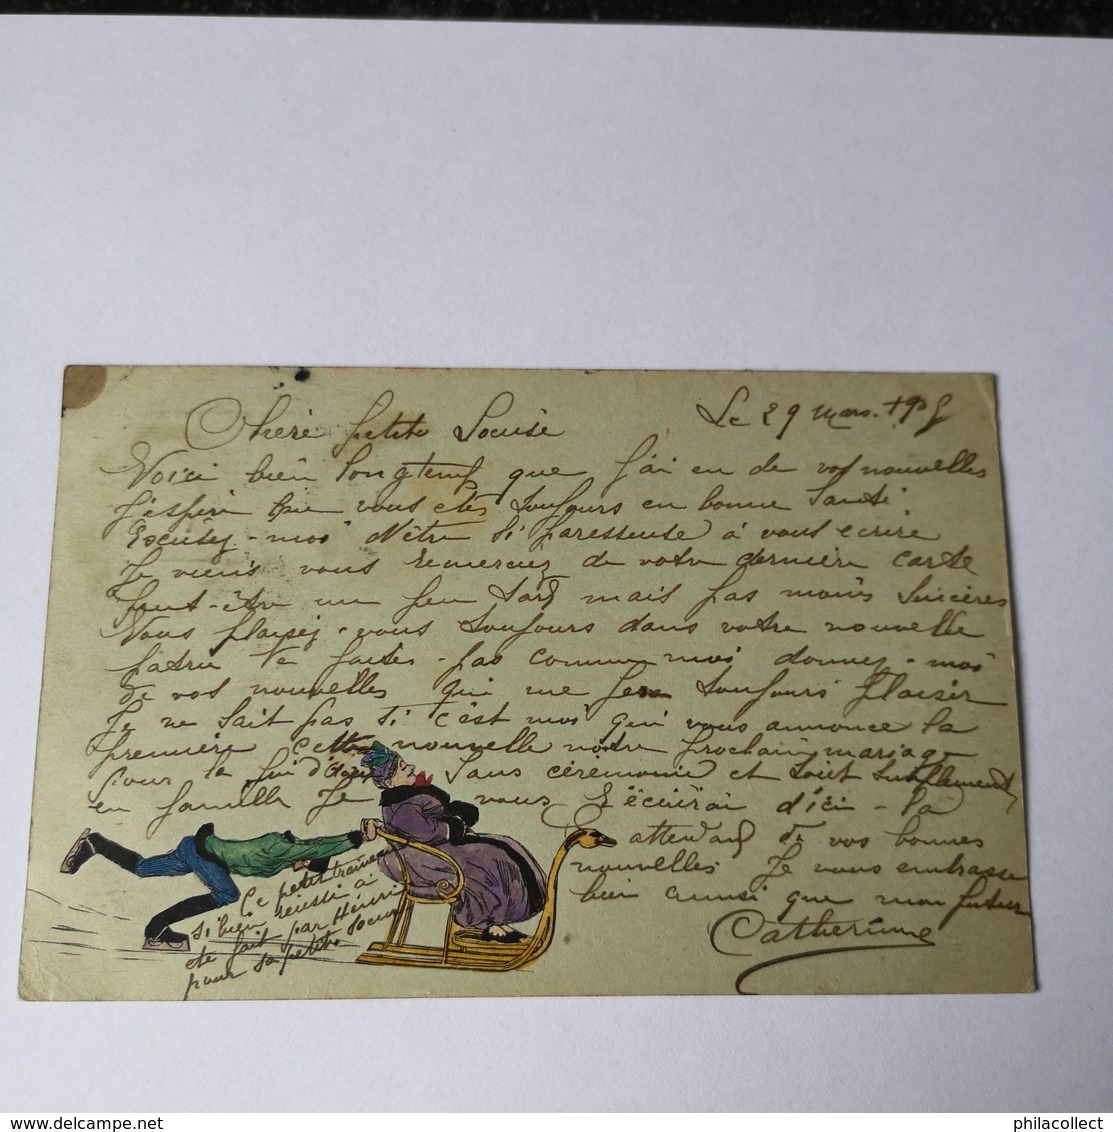 Le 29 mars. 190
Chère petite Louise
Voici bien longtemps que j'ai eu de vos nouvelles
J'espère que vous etes toujours en bonne Santé
Excusez-moi d'être si paresseuse à vous ecrire
Je viens vous remerciez de votre dernière carte
peut-être un peu tard mais pas moins Sincères
Vous plaisez-vous toujours dans votre nouvelle
patrie faites-pas comme moi donnez-moi
de vos nouvelles qui me toujours plaisir
Je ne sait pas si c'est moi qui vous annonce la
première cette nouvelle notre prochain mariage
pour la fin d' Sans cérémonie et Soit Simplement
en famille Je vous d'ici-la
attendant de vos bonnes
nouvelles Je vous embrasse
bien ainsi que mon futur
Catherine
Ce petit traineau
si bien reussi a
ete fait par Henri
pour sa petite Soeur
delcampe.net
philacollect